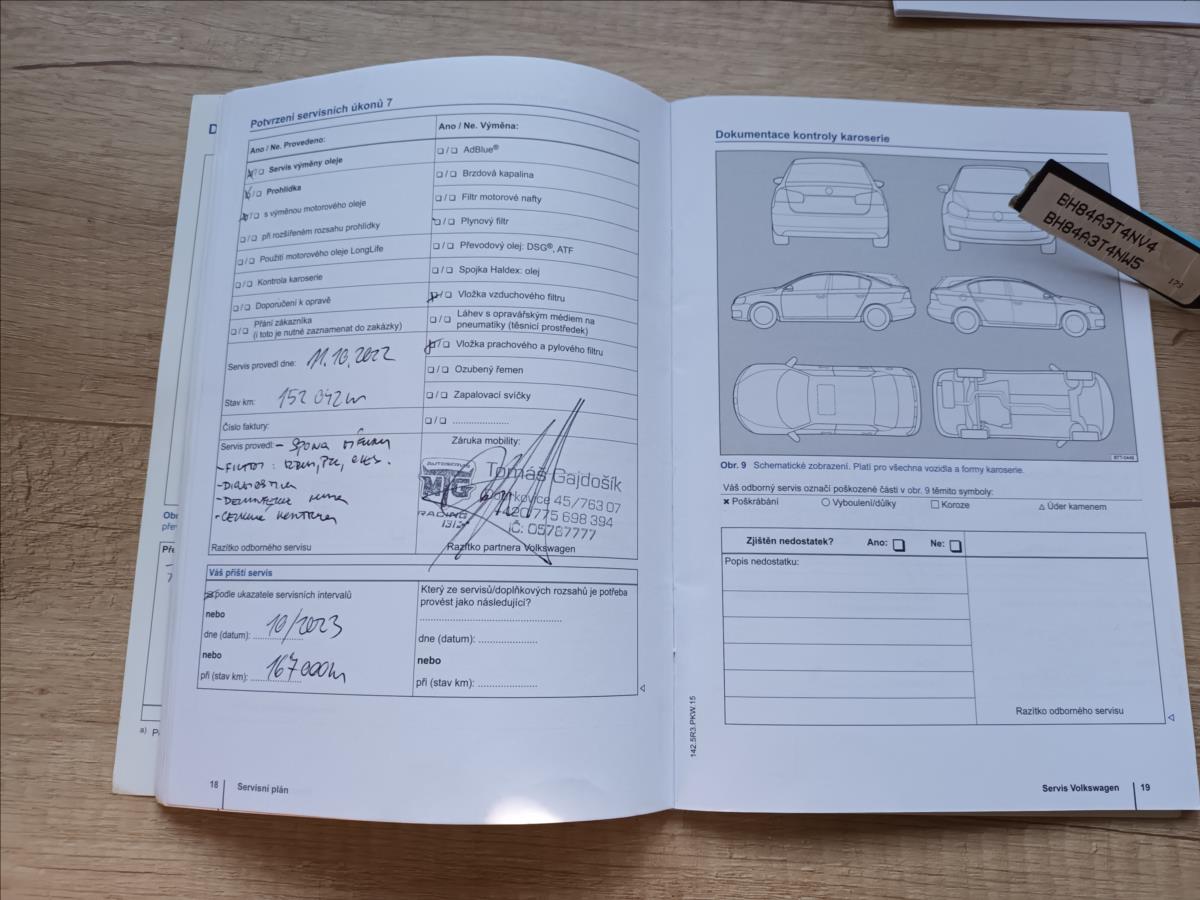 Potvrzení servisních úkonů 7
Ano / Ne. Provedeno:
Servis výměny oleje
Prohlídka
s výměnou motorového oleje
při rozšířeném rozsahu prohlídky
Použití motorového oleje LongLife
Kontrola karoserie
Doporučení k opravě
Přání zákazníka
(i toto je nutné zaznamenat do zakázky)
Servis provedl dne: 11.10.2022
Stav km: 152 042 km
Číslo faktury:
Servis provedl:
- DIAGNOSTIKA
Razítko odborného servisu
Ano / Ne. Výměna:
AdBlue®
Brzdová kapalina
Filtr motorové nafty
Plynový filtr
Převodový olej: DSG®, ATF
Spojka Haldex: olej
Vložka vzduchového filtru
Láhev s opravářským médiem na
pneumatiky (těsnicí prostředek)
Vložka prachového a pylového filtru
Ozubený řemen
Zapalovací svíčky
Záruka mobility:
Tomáš Gajdošík
45/763 07
+420 775 698 394
IČ: 05787777
RACING
Razítko partnera Volkswagen
Váš příští servis
podle ukazatele servisních intervalů
nebo
dne (datum): 10/2023
nebo
při (stav km): 167 000 km
Který ze servisů/doplňkových rozsahů je potřeba
provést jako následující?
dne (datum):
nebo
při (stav km):
18 Servisní plán
Dokumentace kontroly karoserie
BH84A3T4NV4
BH84A3T4NW5
179
Obr. 9 Schematické zobrazení. Platí pro všechna vozidla a formy karoserie.
Váš odborný servis označí poškozené části v obr. 9 těmito symboly:
Poškrábání Vyboulení/důlky Koroze Úder kamenem
Zjištěn nedostatek? Ano: Ne:
Popis nedostatku:
Razítko odborného servisu
142.5R3.PKW.15
Servis Volkswagen 19